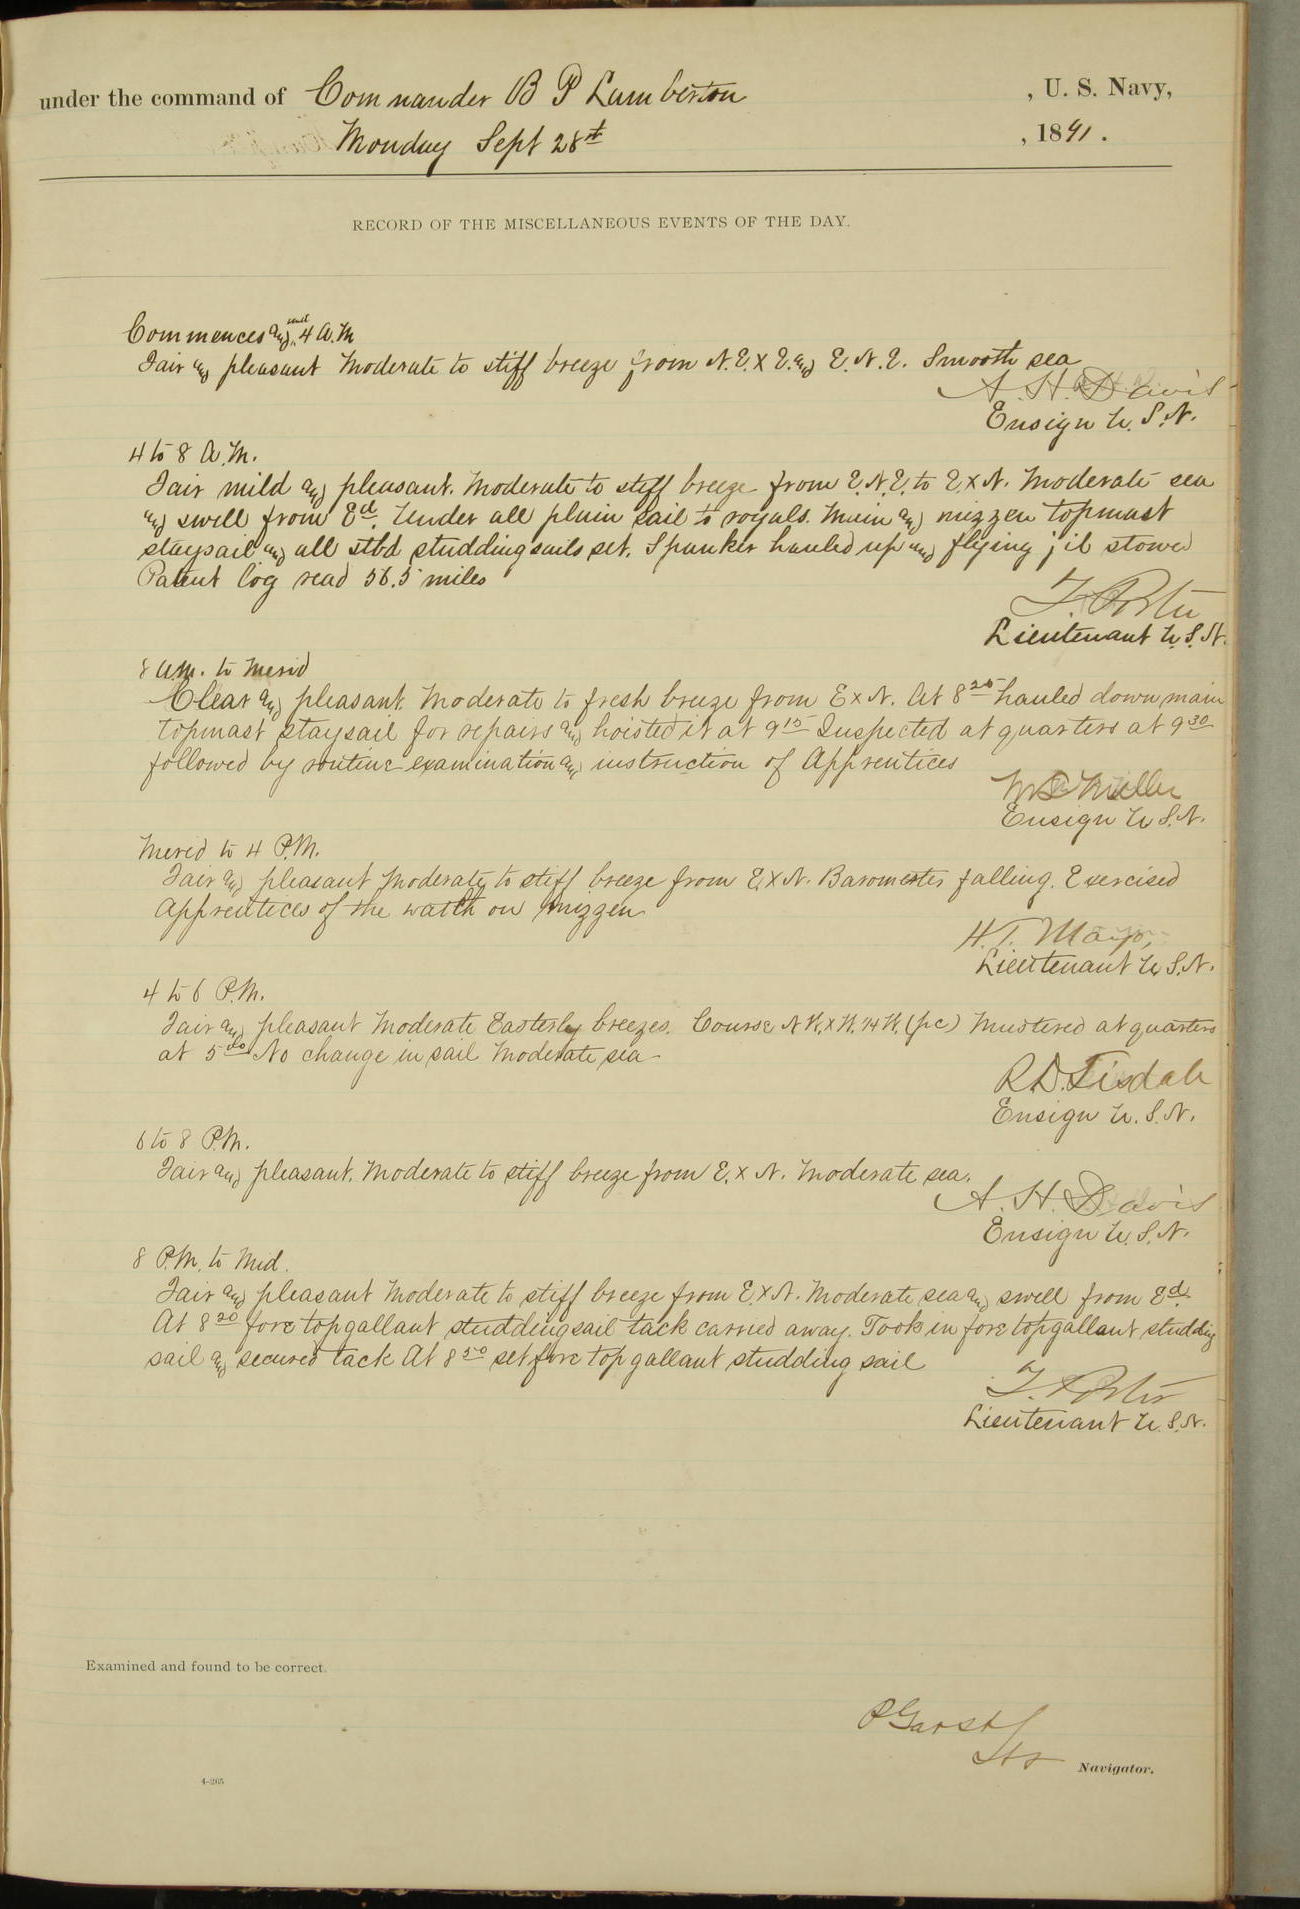 under the command of Commander B P Lamberton , U. S. Navy,
Monday Sept 28st , 1891.
RECORD OF THE MISCELLANEOUS EVENTS OF THE DAY.
Commences and until 4 A.M
Fair and pleasant Moderate to stiff breeze from N.E x E. and E.N.E. Smooth sea
A. H. Davis
Ensign U.S.N.
4 to 8 A.M.
Fair mild and pleasant. Moderate to stiff breeze from E.N.E. to E x N. Moderate sea
and swell from Ed. Under all plain sail to royals. Main and mizzen topmast
staysail and all stbd studdingsails set. Spanker hauled up and flying jib stowed
Patent log read 56.5 miles
T. Porter
Lieutenant U.S.N.
8 am. to merid
Clear and pleasant. Moderate to fresh breeze from E x N. At 8 25 hauled down main
topmast staysail for repairs and hoisted it at 9 15 Inspected at quarters at 9 30
followed by routine examination and instruction of Apprentices
Ensign U.S.N.
Merid to 4 P.M.
Fair and pleasant Moderate to stiff breeze from E x N. Barometer falling. Exercised
apprentices of the watch on mizzen
H.T. Mayo,
Lieutenant U.S.N.
4 to 6 P.M.
Fair and pleasant Moderate Easterly breezes. Course N W. x W. ¼ W. (pc) Mustered at quarters
at 5 30 No change in sail Moderate sea
R.D. Tisdale
Ensign U.S.N.
6 to 8 P.M.
Fair and pleasant. Moderate to stiff breeze from E. x N. Moderate sea.
A. H. Davis
Ensign U.S.N.
8 P.M. to Mid.
Fair and pleasant Moderate to stiff breeze from E. x N. Moderate sea and swell from Ed.
At 8 20 fore topgallant studdingsail tack carried away. Took in fore topgallant studding
sail and secured tack At 8 50 set fore top gallant studding sail
T. Porter
Lieutenant U.S.N.
Examined and found to be correct.
P Garst
Navigator.
4-265